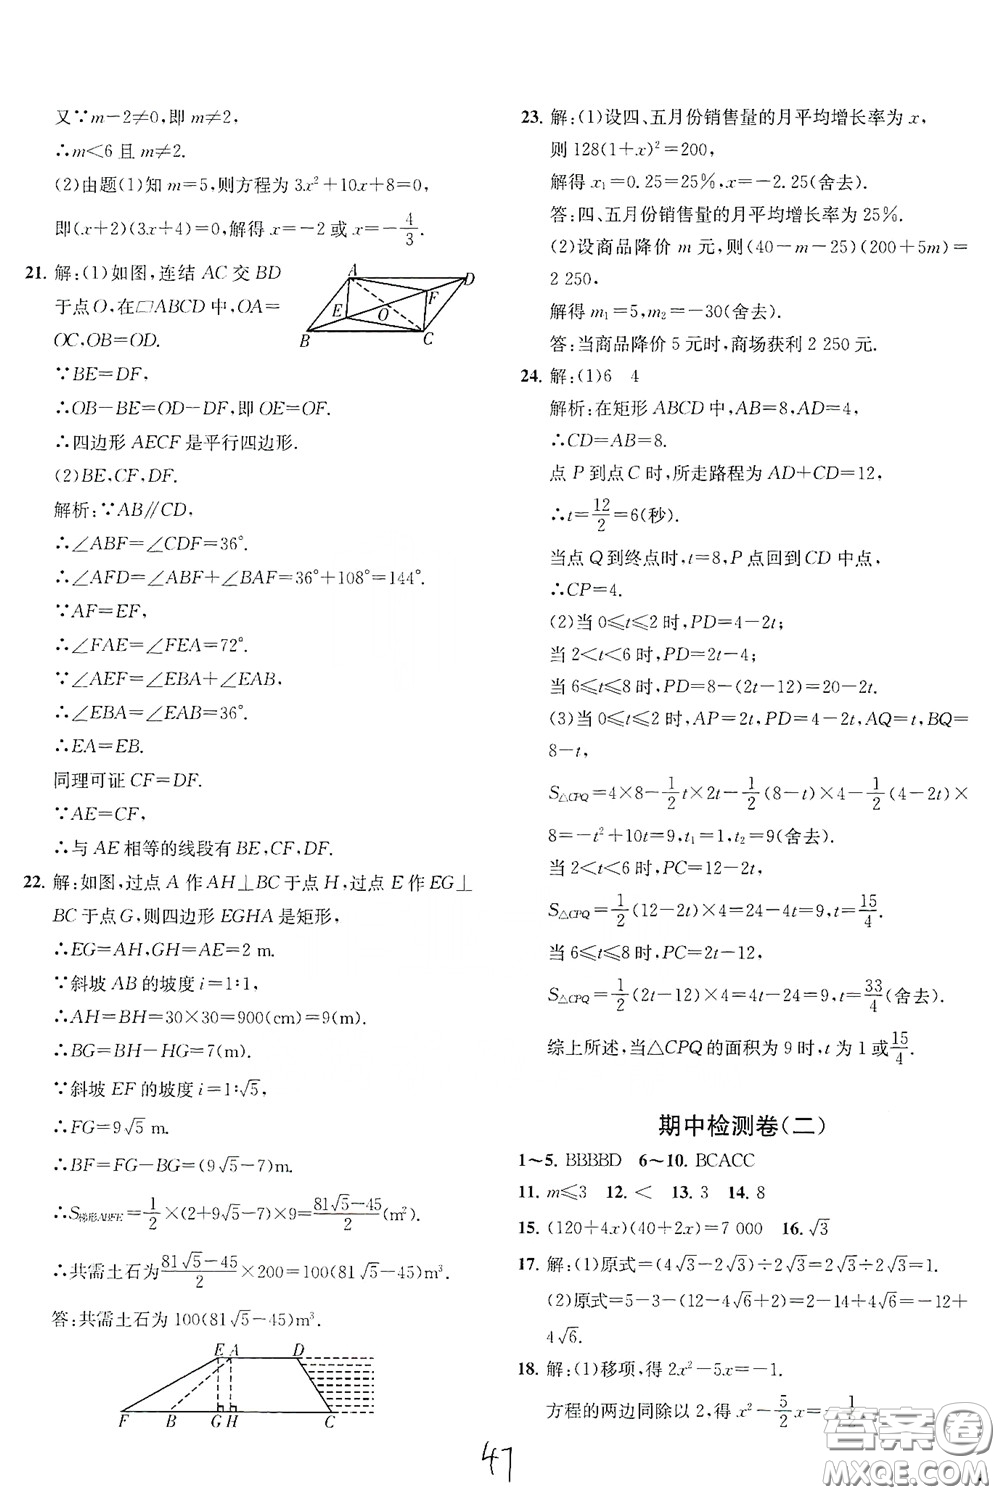 又∵m－2≠0,即 m≠2,
∴m＜6 且 m≠2.
(2)由题(1)知 m＝5,则方程为 3x²＋10x＋8＝0,
即(x＋2)(3x＋4)＝0,解得 x＝－2 或 x＝－4/3.
21. 解:(1)如图,连结 AC 交 BD
于点 O,在□ABCD 中,OA＝
OC,OB＝OD.
∵BE＝DF,
∴OB－BE＝OD－DF,即 OE＝OF.
∴四边形 AECF 是平行四边形.
(2)BE,CF,DF.
解析:∵AB∥CD,
∴∠ABF＝∠CDF＝36°.
∴∠AFD＝∠ABF＋∠BAF＝36°＋108°＝144°.
∵AF＝EF,
∴∠FAE＝∠FEA＝72°.
∵∠AEF＝∠EBA＋∠EAB,
∴∠EBA＝∠EAB＝36°.
∴EA＝EB.
同理可证 CF＝DF.
∵AE＝CF,
∴与 AE 相等的线段有 BE,CF,DF.
A D F E O B C
22. 解:如图,过点 A 作 AH⊥BC 于点 H,过点 E 作 EG⊥
BC 于点 G,则四边形 EGHA 是矩形,
∴EG＝AH,GH＝AE＝2 m.
∵斜坡 AB 的坡度 i＝1∶1,
∴AH＝BH＝30×30＝900(cm)＝9(m).
∴BG＝BH－HG＝7(m).
∵斜坡 EF 的坡度 i＝1∶√5,
∴FG＝9√5 m.
∴BF＝FG－BG＝(9√5－7)m.
∴S梯形ABFE＝1/2×(2＋9√5－7)×9＝(81√5－45)/2(m²).
∴共需土石为(81√5－45)/2×200＝100(81√5－45)m³.
答:共需土石为 100(81√5－45)m³.
E A D
F B G H C
23. 解:(1)设四、五月份销售量的月平均增长率为 x,
则 128(1＋x)²＝200,
解得 x₁＝0.25＝25%,x＝－2.25(舍去).
答:四、五月份销售量的月平均增长率为 25%.
(2)设商品降价 m 元,则(40－m－25)(200＋5m)＝
2 250,
解得 m₁＝5,m₂＝－30(舍去).
答:当商品降价 5 元时,商场获利 2 250 元.
24. 解:(1)6 4
解析:在矩形 ABCD 中,AB＝8,AD＝4,
∴CD＝AB＝8.
点 P 到点 C 时,所走路程为 AD＋CD＝12,
∴t＝12/2＝6(秒).
当点 Q 到终点时,t＝8,P 点回到 CD 中点,
∴CP＝4.
(2)当 0≤t≤2 时,PD＝4－2t;
当 2＜t＜6 时,PD＝2t－4;
当 6≤t≤8 时,PD＝8－(2t－12)＝20－2t.
(3)当 0≤t≤2 时,AP＝2t,PD＝4－2t,AQ＝t,BQ＝
8－t,
S△CPQ＝4×8－1/2t×2t－1/2(8－t)×4－1/2(4－2t)×
8＝－t²＋10t＝9,t₁＝1,t₂＝9(舍去).
当 2＜t＜6 时,PC＝12－2t,
S△CPQ＝1/2(12－2t)×4＝24－4t＝9,t＝15/4.
当 6≤t≤8 时,PC＝2t－12,
S△CPQ＝1/2(2t－12)×4＝4t－24＝9,t＝33/4(舍去).
综上所述,当△CPQ 的面积为 9 时,t 为 1 或15/4.
期中检测卷(二)
1～5. BBBBD 6～10. BCACC
11. m≤3 12. ＜ 13. 3 14. 8
15. (120＋4x)(40＋2x)＝7 000 16. √3
17. 解:(1)原式＝(4√3－2√3)÷2√3＝2√3÷2√3＝1.
(2)原式＝5－3－(12－4√6＋2)＝2－14＋4√6＝－12＋
4√6.
18. 解:(1)移项,得 2x²－5x＝－1.
方程的两边同除以 2,得 x²－5/2x＝－1/2
47
答案卷
MXQE.COM